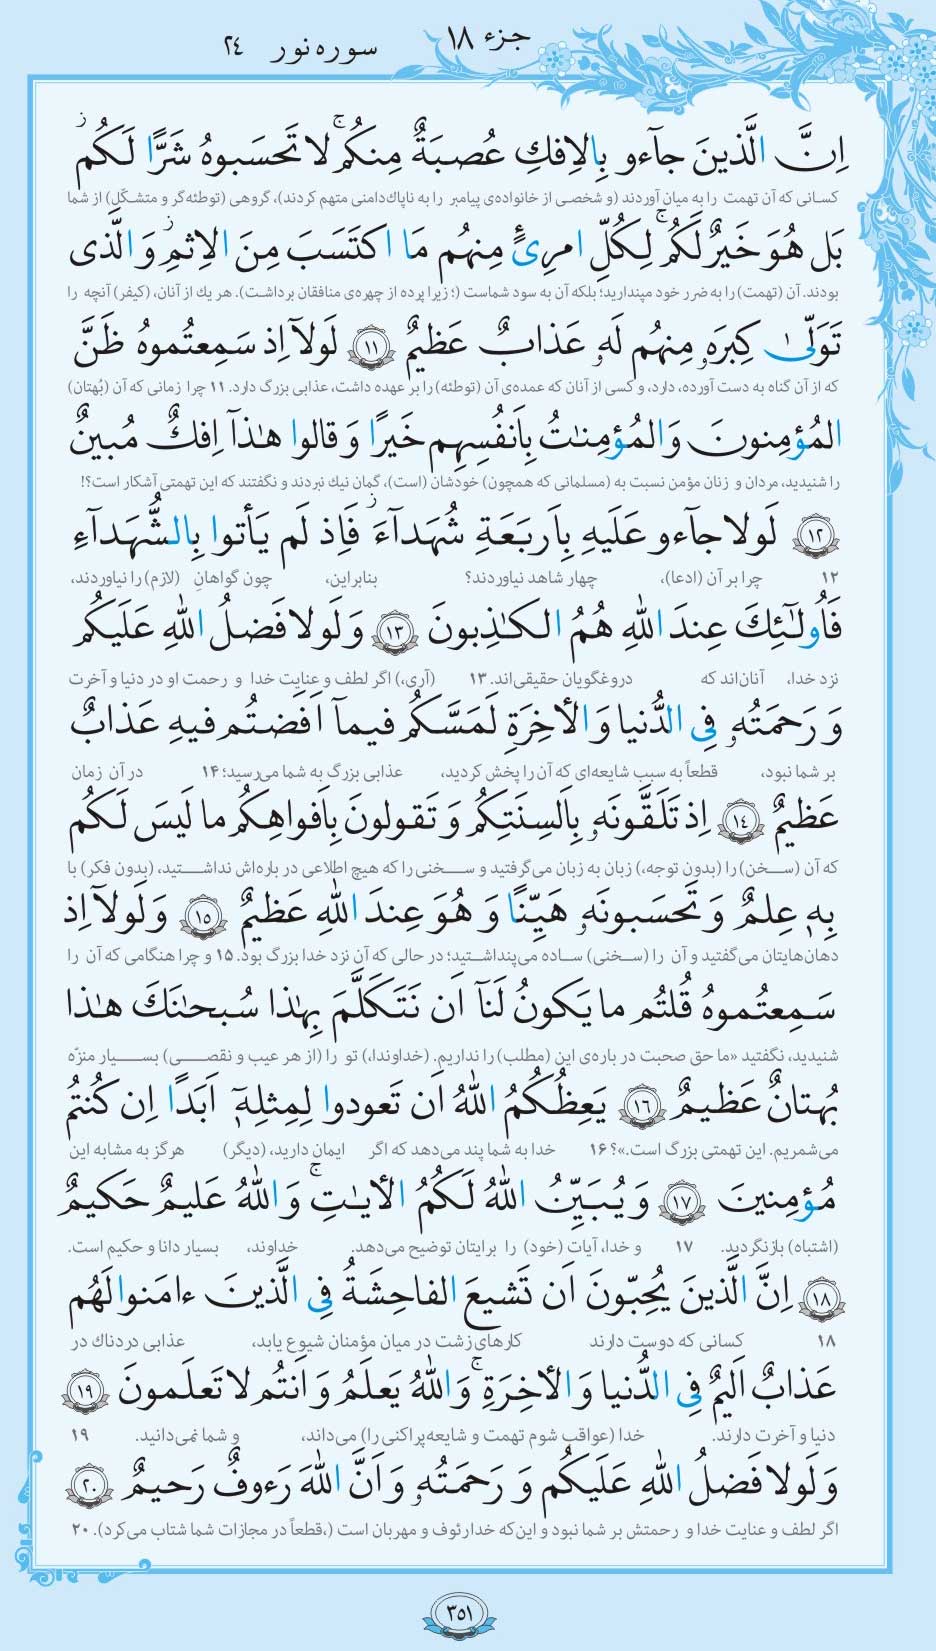 جزء ۱۸
سوره نور ۲۴
اِنَّ الَّذینَ جآءو بِالاِفکِ عُصبَةٌ مِنکُم ۚ لا تَحسَبوهُ شَرًّا لَکُم ۖ
کسانی که آن تهمت را به میان آوردند (و شخصی از خانواده‌ی پیامبر را به ناپاك‌دامنی متهم کردند)، گروهی (توطئه‌گر و متشکّل) از شما
بَل هُوَ خَیرٌ لَکُم ۚ لِکُلِّ امرِیٍٔ مِنهُم مَا اکتَسَبَ مِنَ الاِثمِ ۚ وَ الَّذی
بودند. آن (تهمت) را به ضرر خود مپندارید؛ بلکه آن به سود شماست (؛ زیرا پرده از چهره‌ی منافقان برداشت). هر یك از آنان، (کیفر) آنچه را
تَوَلّىٰ کِبرَهٗ مِنهُم لَهٗ عَذابٌ عَظیمٌ ﴿۱۱﴾ لَولآ اِذ سَمِعتُموهُ ظَنَّ
که از آن گناه به دست آورده، دارد، و کسی از آنان که عمده‌ی آن (توطئه) را بر عهده داشت، عذابی بزرگ دارد. ۱۱ چرا زمانی که آن (بُهتان)
المُؤمِنونَ وَ المُؤمِنٰتُ بِاَنفُسِهِم خَیرًا وَ قالوا هٰذآ اِفكٌ مُبینٌ
را شنیدید، مردان و زنان مؤمن نسبت به (مسلمانی که همچون) خودشان (است)، گمان نیك نبردند و نگفتند که این تهمتی آشکار است؟!
﴿۱۲﴾ لَولا جآءو عَلَیهِ بِاَربَعَةِ شُهَدآءَ ۚ فَاِذ لَم یَأتوا بِالشُّهَدآءِ
۱۲ چرا بر آن (ادعا)، چهار شاهد نیاوردند؟ بنابراین، چون گواهانِ (لازم) را نیاوردند،
فَاُولٰٓئِكَ عِندَ اللهِ هُمُ الکٰذِبونَ ﴿۱۳﴾ وَ لَولا فَضلُ اللهِ عَلَیکُم
نزد خدا، آنان‌اند که دروغگویان حقیقی‌اند. ۱۳ (آری،) اگر لطف و عنایت خدا و رحمت او در دنیا و آخرت
وَ رَحمَتُهٗ فِی الدُّنیا وَ الاٰخِرَةِ لَمَسَّکُم فیمآ اَفَضتُم فیهِ عَذابٌ
بر شما نبود، قطعاً به سبب شایعه‌ای که آن را پخش کردید، عذابی بزرگ به شما می‌رسید؛ ۱۴ در آن زمان
عَظیمٌ ﴿۱۴﴾ اِذ تَلَقَّونَهٗ بِاَلسِنَتِکُم وَ تَقولونَ بِاَفواهِکُم ما لَیسَ لَکُم
که آن (سخن) را (بدون توجه،) زبان به زبان می‌گرفتید و سخنی را که هیچ اطلاعی در باره‌اش نداشتید، (بدون فکر) با
بِهٖ عِلمٌ وَ تَحسَبونَهٗ هَیِّنًا وَ هُوَ عِندَ اللهِ عَظیمٌ ﴿۱۵﴾ وَ لَولآ اِذ
دهان‌هایتان می‌گفتید و آن را (سخنی) ساده می‌پنداشتید؛ در حالی که آن نزد خدا بزرگ بود. ۱۵ و چرا هنگامی که آن را
سَمِعتُموهُ قُلتُم ما یَکونُ لَنآ اَن نَتَکَلَّمَ بِهٰذا سُبحٰنَكَ هٰذا
شنیدید، نگفتید «ما حق صحبت در باره‌ی این (مطلب) را نداریم. (خداوندا،) تو را (از هر عیب و نقصی) بسیار منزّه
بُهتانٌ عَظیمٌ ﴿۱۶﴾ یَعِظُکُمُ اللهُ اَن تَعودوا لِمِثلِهٖٓ اَبَدًا اِن کُنتُم
می‌شمریم. این تهمتی بزرگ است.»؟ ۱۶ خدا به شما پند می‌دهد که اگر ایمان دارید، (دیگر) هرگز به مشابه این
مُؤمِنینَ ﴿۱۷﴾ وَ یُبَیِّنُ اللهُ لَکُمُ الاٰیٰتِ ۚ وَ اللهُ عَلیمٌ حَکیمٌ
(اشتباه) بازنگردید. ۱۷ و خدا، آیات (خود) را برایتان توضیح می‌دهد. خداوند، بسیار دانا و حکیم است.
﴿۱۸﴾ اِنَّ الَّذینَ یُحِبّونَ اَن تَشیعَ الفاحِشَةُ فِی الَّذینَ ءامَنوا لَهُم
۱۸ کسانی که دوست دارند کارهای زشت در میان مؤمنان شیوع یابد، عذابی دردناك در
عَذابٌ اَلیمٌ فِی الدُّنیا وَ الاٰخِرَةِ ۚ وَ اللهُ یَعلَمُ وَ اَنتُم لا تَعلَمونَ ﴿۱۹﴾
دنیا و آخرت دارند. خدا (عواقب شوم تهمت و شایعه‌پراکنی را) می‌داند، و شما نمی‌دانید. ۱۹
وَ لَولا فَضلُ اللهِ عَلَیکُم وَ رَحمَتُهٗ وَ اَنَّ اللهَ رَءوفٌ رَحیمٌ ﴿۲۰﴾
اگر لطف و عنایت خدا و رحمتش بر شما نبود و این‌که خدا رئوف و مهربان است (،قطعاً در مجازات شما شتاب می‌کرد). ۲۰
۳۵۱